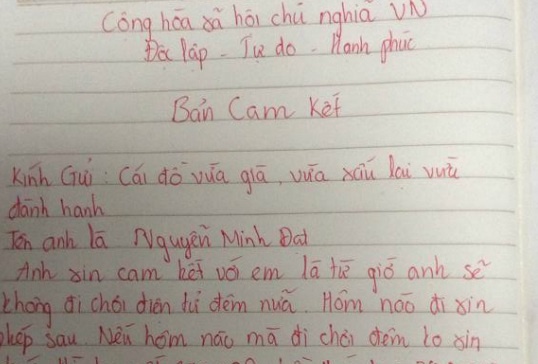 Cộng hòa xã hội chủ nghĩa VN
Độc lập - Tự do - Hạnh phúc
Bản Cam Kết
Kính Gửi : Cái đồ vừa già, vừa xấu lại vừa
đành hanh
Tên anh là Nguyễn Minh Đạt
Anh xin cam kết với em là từ giờ anh sẽ
không đi chơi điện tử đêm nữa. Hôm nào đi xin
phép sau. Nếu hôm nào mà đi chơi đêm ko xin